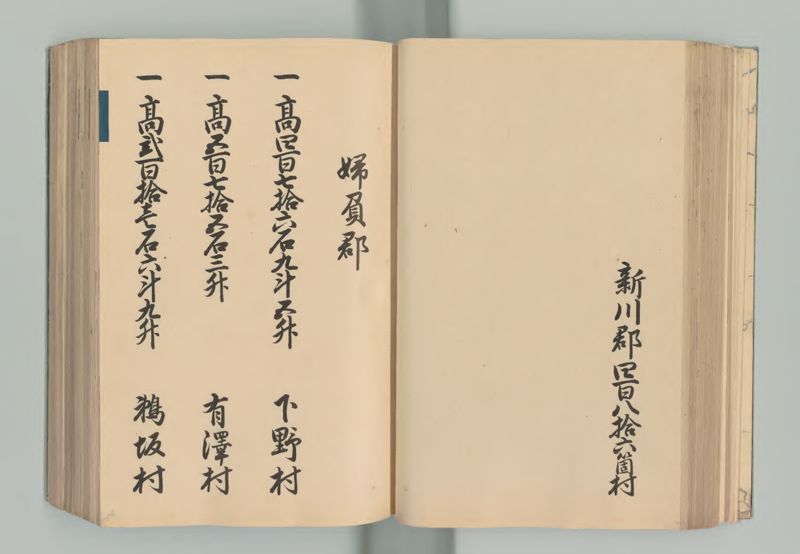 新川郡四百八拾六箇村
婦負郡
一高四百七拾六石九斗五升 下野村
一高五百七拾五石三升 有澤村
一高弐百拾壱石六斗九升 鵜坂村